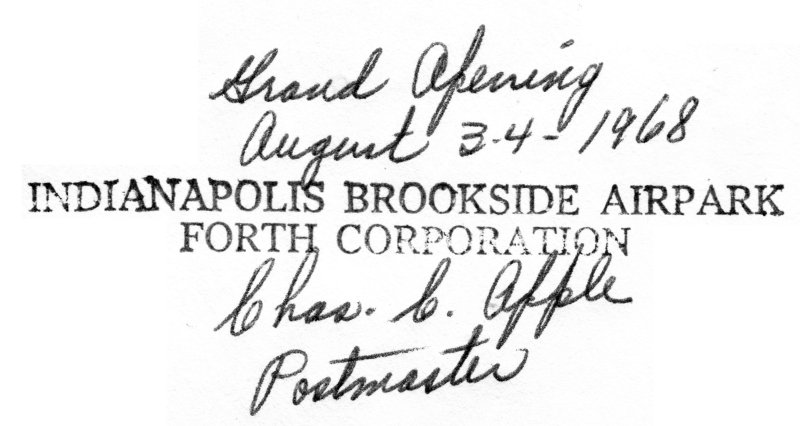 Grand Opening
August 3-4-1968
INDIANAPOLIS BROOKSIDE AIRPARK
FORTH CORPORATION
Chas. C. Apple
Postmaster